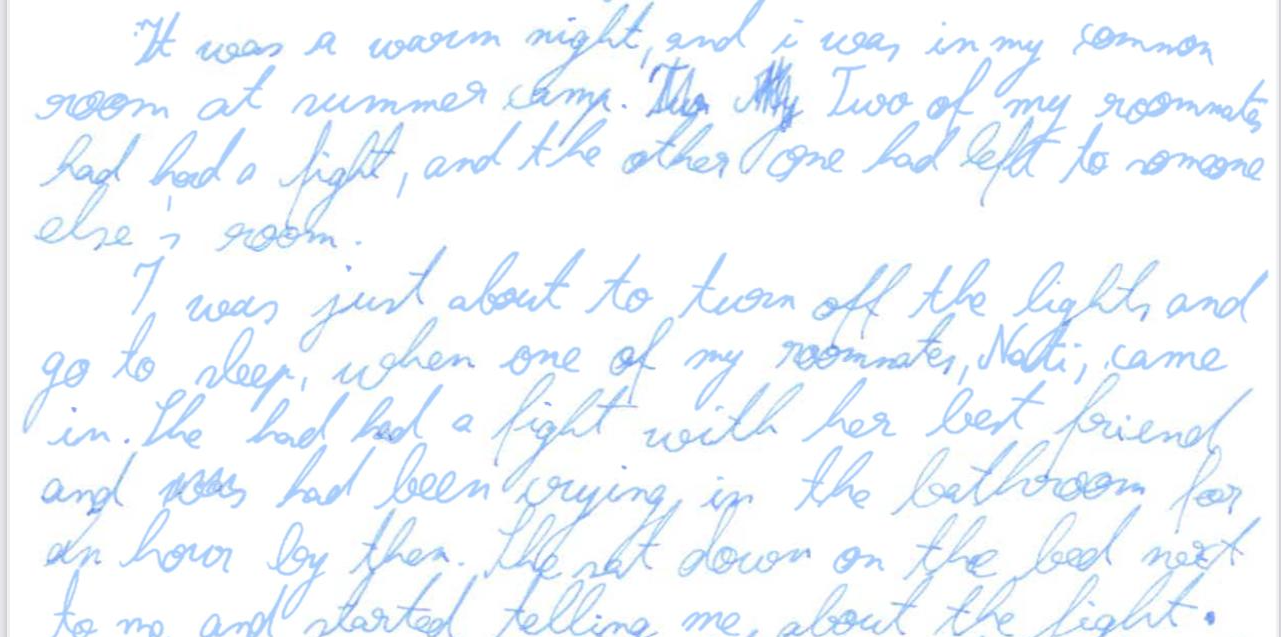 It was a warm night, and i was in my common
room at summer camp. Two My Two of my roommates
had had a fight, and the other one had left to someone
else's room.
I was just about to turn off the lights and
go to sleep, when one of my roommates, Nati, came
in. She had had a fight with her best friend
and was had been crying in the bathroom for
an hour by then. She sat down on the bed next
to me and started telling me about the fight.